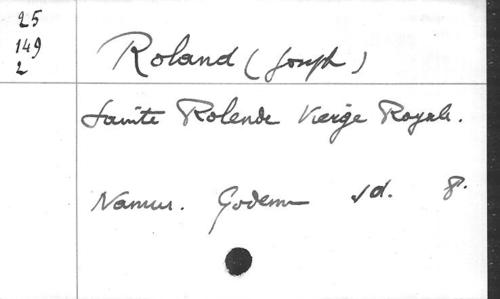 25
149
2
Roland (Joseph)
Sainte Rolende Vierge Royale.
Namur. Godenne sd. 8.